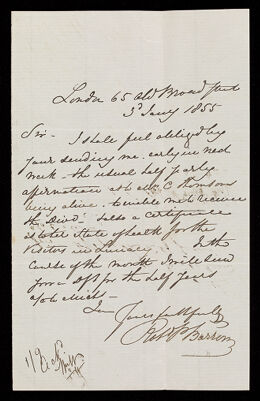 London 65 Old Broad Street
3d Jany 1855
Sir - I shall feel obliged by
your sending me early in next
week - the usual half yearly
affirmation as to C Thomson
being alive - to enable me to receive
the Divd. also a certificate
as to her state of health for the
Visitors in Lunacy In the
course of the month I will send
you a Dft for the half years
a/c to Michs -
I am
Yours faithfully
Barron